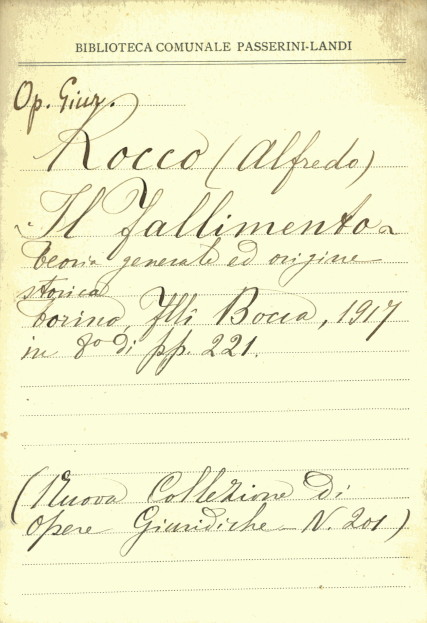 BIBLIOTECA COMUNALE PASSERINI-LANDI
Op. Giur.
Rocco (Alfredo)
Il fallimento
teoria generale ed origine
storica
Torino, F.lli Bocca, 1917
in 8º di pp. 221.
(Nuova Collezione di
opere Giuridiche - N. 201)